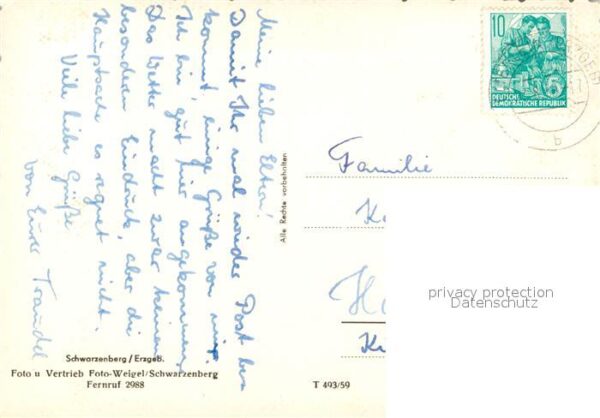 Meine lieben Eltern!
Damit Ihr mal wieder Post be-
kommt, einige Grüße von mir.
Ich bin gut hier angekommen,
Das Wetter macht zwar keinen
besonderen Eindruck, aber die
Hauptsache es regnet nicht.
Viele liebe Grüße
von Eurer Traudel
Schwarzenberg / Erzgeb.
Foto u Vertrieb Foto-Weigel/Schwarzenberg
Fernruf 2988
Alle Rechte vorbehalten
T 493/59
10
DEUTSCHE
DEMOKRATISCHE REPUBLIK
5
b
Familie
K
H
K
privacy protection
Datenschutz